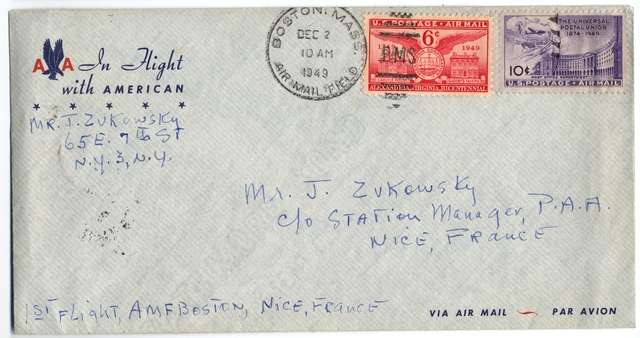 AA In Flight
with AMERICAN
MR. J. ZUKOWSKY
65 E. 7th ST
N.Y. 3, N.Y.
BOSTON, MASS.
DEC 2
10 AM
1949
AIR MAIL FIELD
U.S. POSTAGE · AIR MAIL
6¢
1949
AMS
ALEXANDRIA, VIRGINIA, BICENTENNIAL
THE UNIVERSAL
POSTAL UNION
1874-1949
10¢
U.S. POSTAGE · AIR MAIL
Mr. J. ZUKOWSKY
c/o STATION Manager, P.A.A.
NICE, FRANCE
1ST FLIGHT, AMFBOSTON, NICE, FRANCE
VIA AIR MAIL PAR AVION